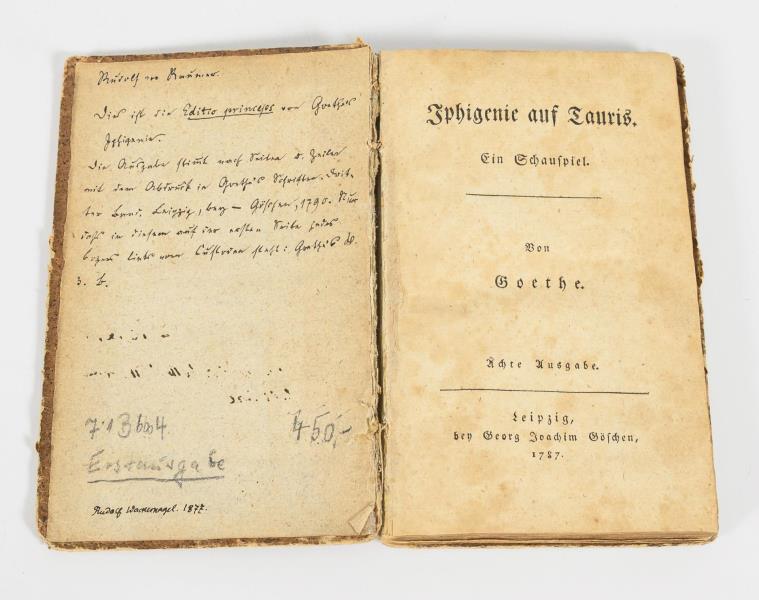 Rudolf von Raumer.
Dies ist die Editio princeps von Goethe's
Iphigenie.
Die Ausgabe stimmt nach Seiten u. Zeilen
mit dem Abdruck in Goethe's Schriften. Drit-
ter Band. Leipzig, bey – Göschen, 1790. Nur
daß in diesem auf der ersten Seite jedes
Bogens links vom Custoden steht: Goethe's W.
3. B.
713604
450,-
Erstausgabe
Rudolf Wackernagel. 1877.
Iphigenie auf Tauris.
Ein Schauspiel.
Von
Goethe.
Ächte Ausgabe.
Leipzig,
bey Georg Joachim Göschen,
1787.